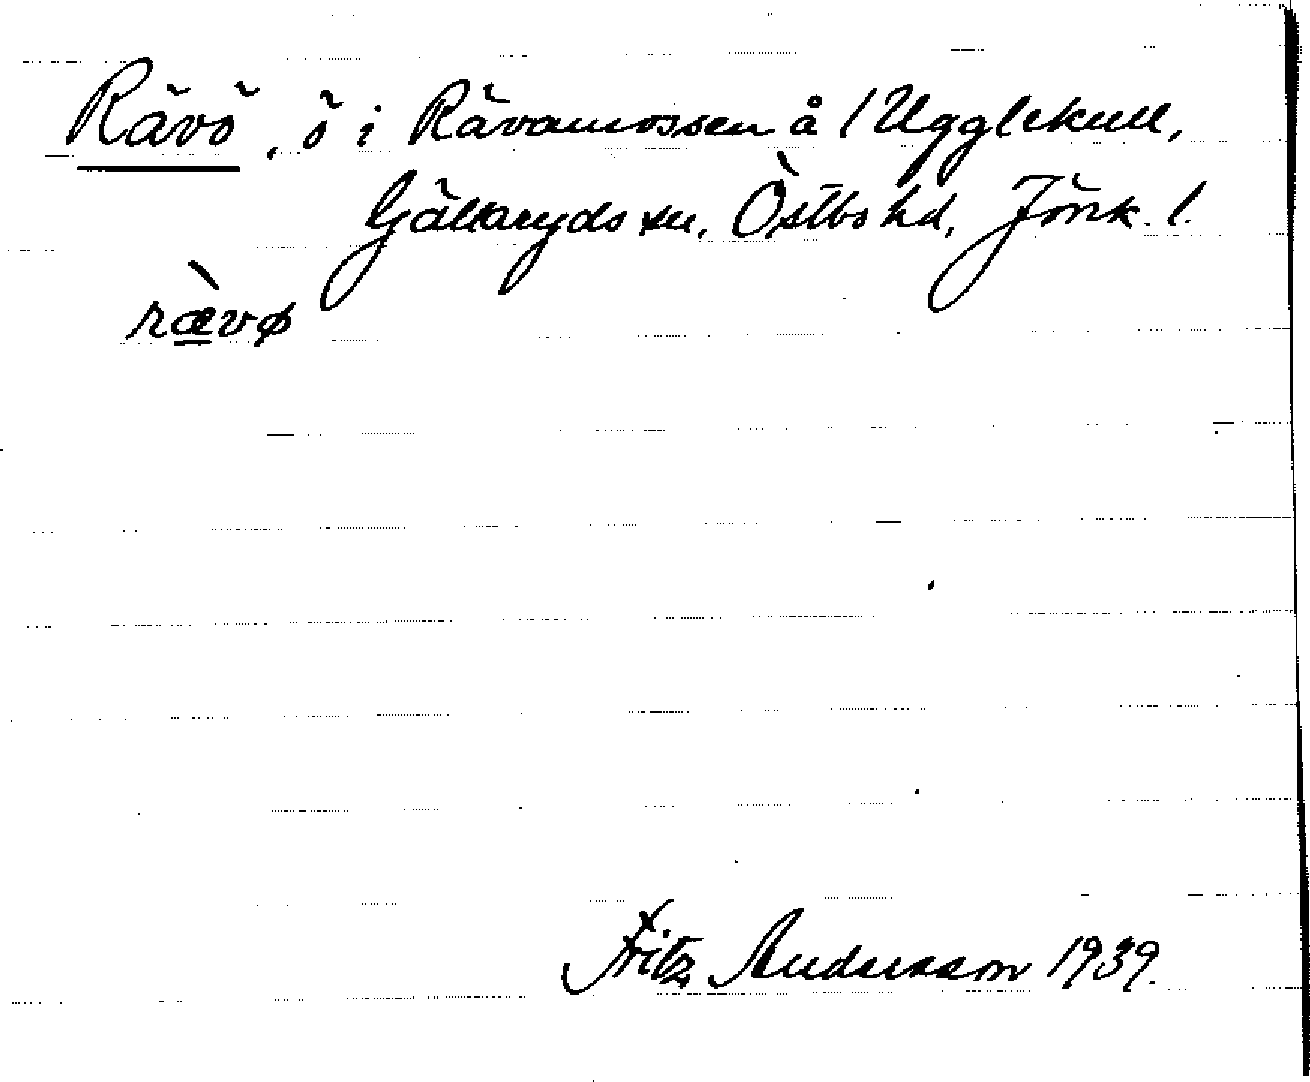 Rävö, ö i Rävamossen å / Ugglekull,
Gällaryds sn, Östbo hd, Jönk. l.
ræ̀vø
Fritz Andersson 1939.